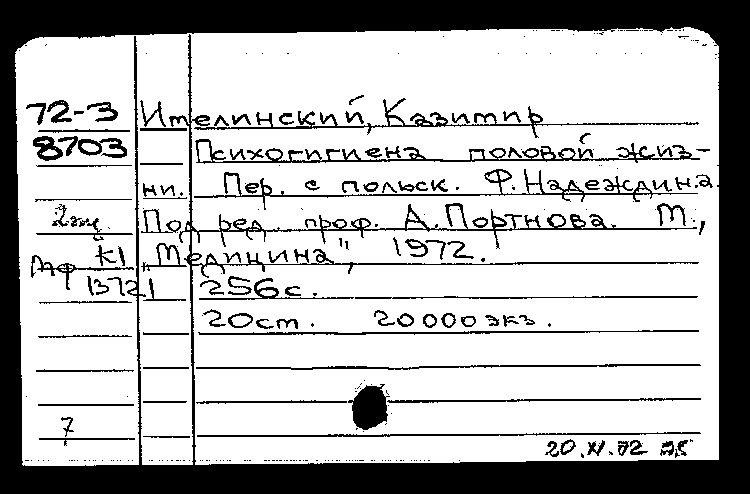 72-3 Ителинский, Казимир
8703 Психогигиена половой жиз-
ни. Пер. с польск. Ф. Надеждина.
2экз. Под ред. проф. А. Портнова. М.,
К1 „Медицина", 1972.
Мф 13721 256 с.
20 ст. 20000 экз.
7
20.XI.72